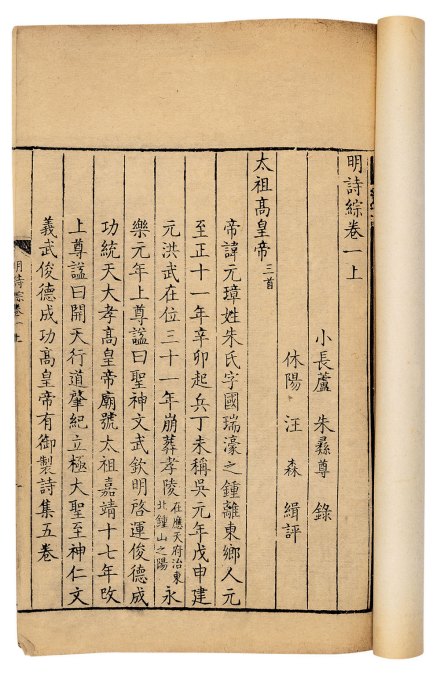 明詩綜卷一上
小長蘆 朱彝尊 錄
休陽 汪森 緝評
太祖高皇帝三首
帝諱元璋姓朱氏字國瑞濠之鍾離東鄉人元
至正十一年辛卯起兵丁未稱吳元年戊申建
元洪武在位三十一年崩葬孝陵在應天府治東北鍾山之陽永
樂元年上尊諡曰聖神文武欽明啓運俊德成
功統天大孝高皇帝廟號太祖嘉靖十七年改
上尊諡曰開天行道肇紀立極大聖至神仁文
義武俊德成功高皇帝有御製詩集五卷
明詩綜卷一上